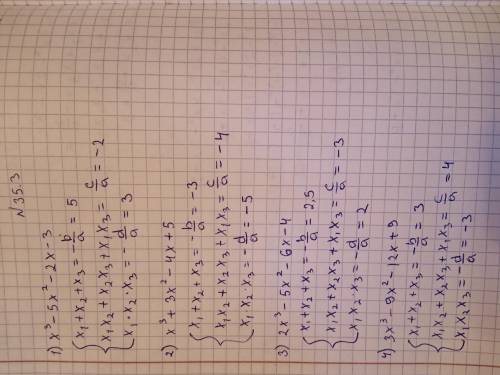 №35.3
1) x³-5x²-2x-3
{x₁+x₂+x₃=-b/a=5
x₁x₂+x₂x₃+x₁x₃=c/a=-2
x₁·x₂·x₃=-d/a=3
2) x³+3x²-4x+5
{x₁+x₂+x₃=-b/a=-3
x₁x₂+x₂x₃+x₁x₃=c/a=-4
x₁x₂·x₃=-d/a=-5
3) 2x³-5x²-6x-4
{x₁+x₂+x₃=-b/a=2,5
x₁x₂+x₂x₃+x₁x₃=c/a=-3
x₁x₂·x₃=-d/a=2
4) 3x³-9x²-12x+9
{x₁+x₂+x₃=-b/a=3
x₁x₂+x₂x₃+x₁x₃=c/a=4
x₁x₂x₃=-d/a=-3